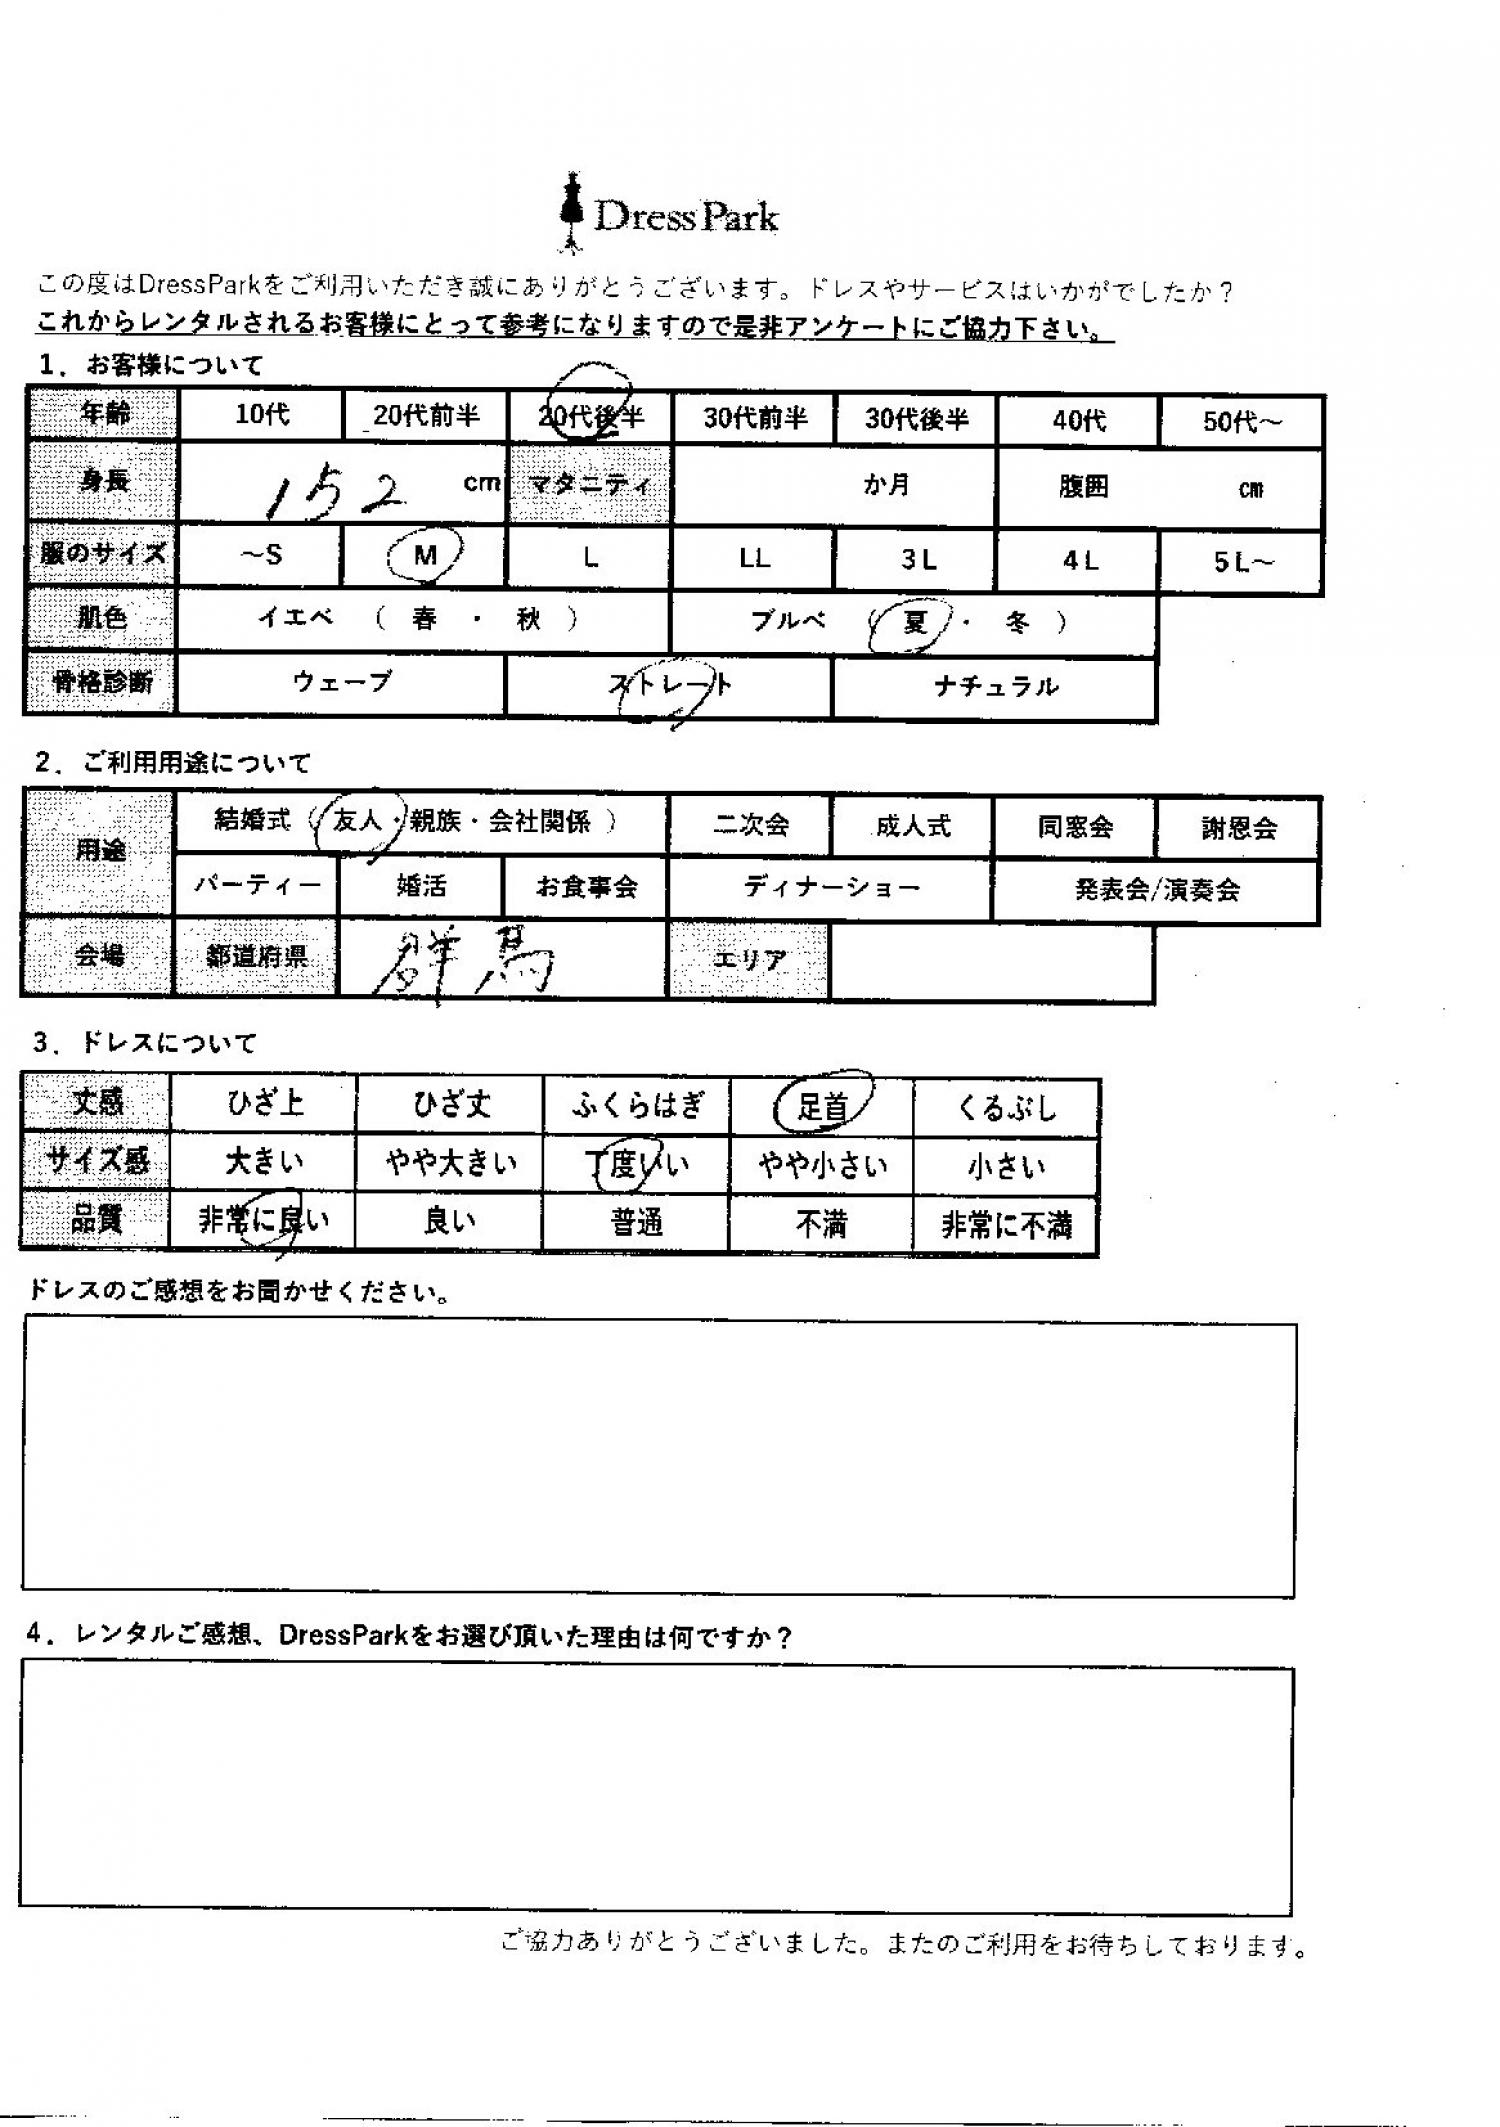 Dress Park
この度はDressParkをご利用いただき誠にありがとうございます。ドレスやサービスはいかがでしたか？
これからレンタルされるお客様にとって参考になりますので是非アンケートにご協力下さい。
1．お客様について
年齢 10代 20代前半 20代後半 30代前半 30代後半 40代 50代～
身長 152 cm マタニティ か月 腹囲 cm
服のサイズ ～S M L LL 3L 4L 5L～
肌色 イエベ （ 春 ・ 秋 ） ブルベ （ 夏 ・ 冬 ）
骨格診断 ウェーブ ストレート ナチュラル
2．ご利用用途について
用途 結婚式（ 友人・親族・会社関係 ） 二次会 成人式 同窓会 謝恩会
パーティー 婚活 お食事会 ディナーショー 発表会/演奏会
会場 都道府県 群馬 エリア
3．ドレスについて
丈感 ひざ上 ひざ丈 ふくらはぎ 足首 くるぶし
サイズ感 大きい やや大きい 丁度いい やや小さい 小さい
品質 非常に良い 良い 普通 不満 非常に不満
ドレスのご感想をお聞かせください。
4．レンタルご感想、DressParkをお選び頂いた理由は何ですか？
ご協力ありがとうございました。またのご利用をお待ちしております。